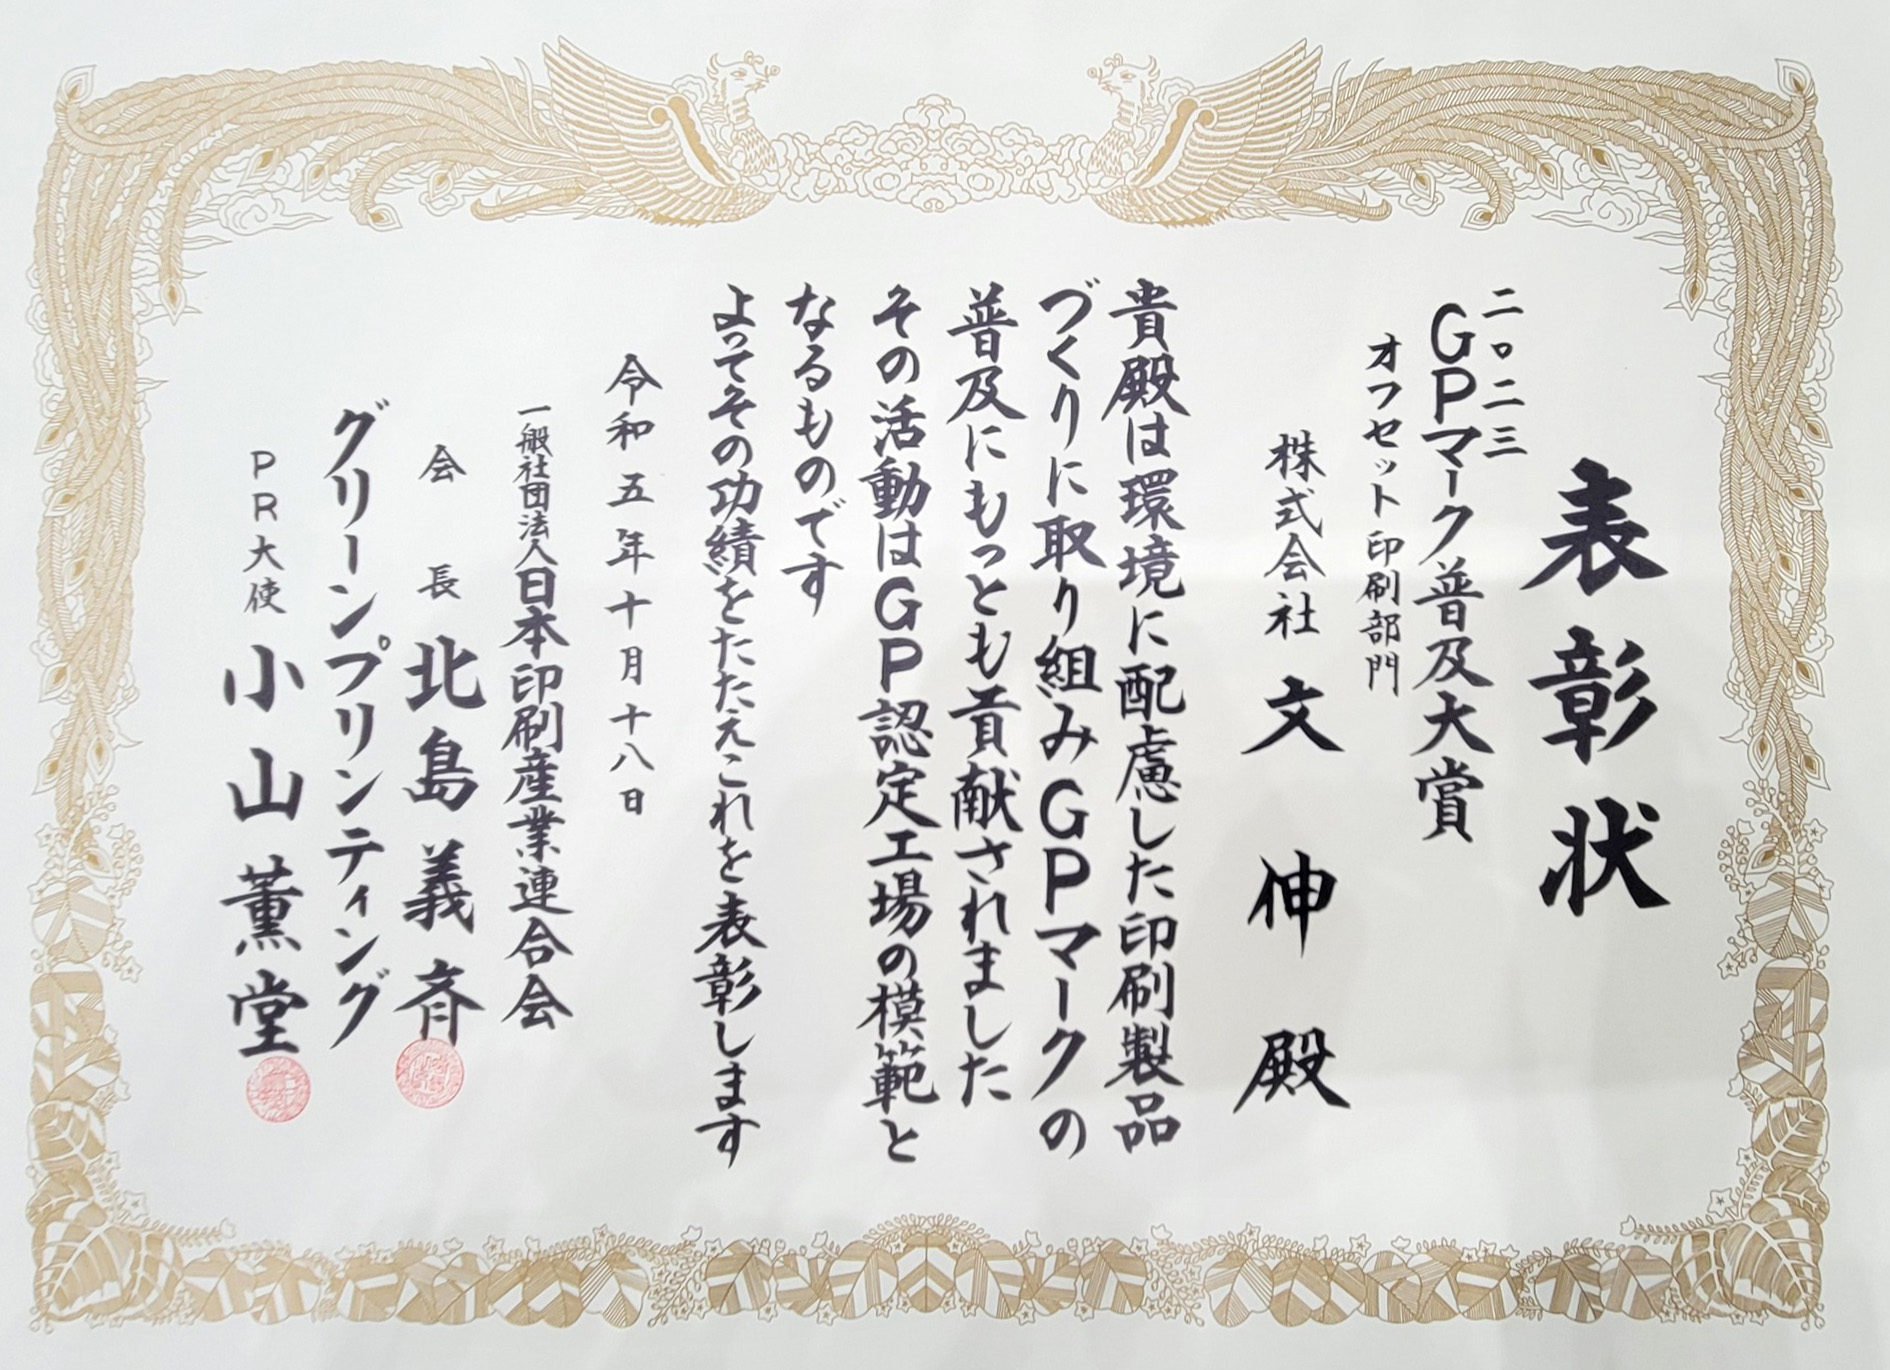 表彰状
二〇二三
GPマーク普及大賞
オフセット印刷部門
株式会社 文伸 殿
貴殿は環境に配慮した印刷製品
づくりに取り組みGPマークの
普及にもっとも貢献されました
その活動はGP認定工場の模範と
なるものです
よってその功績をたたえこれを表彰します
令和五年十月十八日
一般社団法人日本印刷産業連合会
会長 北島義斉
グリーンプリンティング
PR大使 小山薫堂